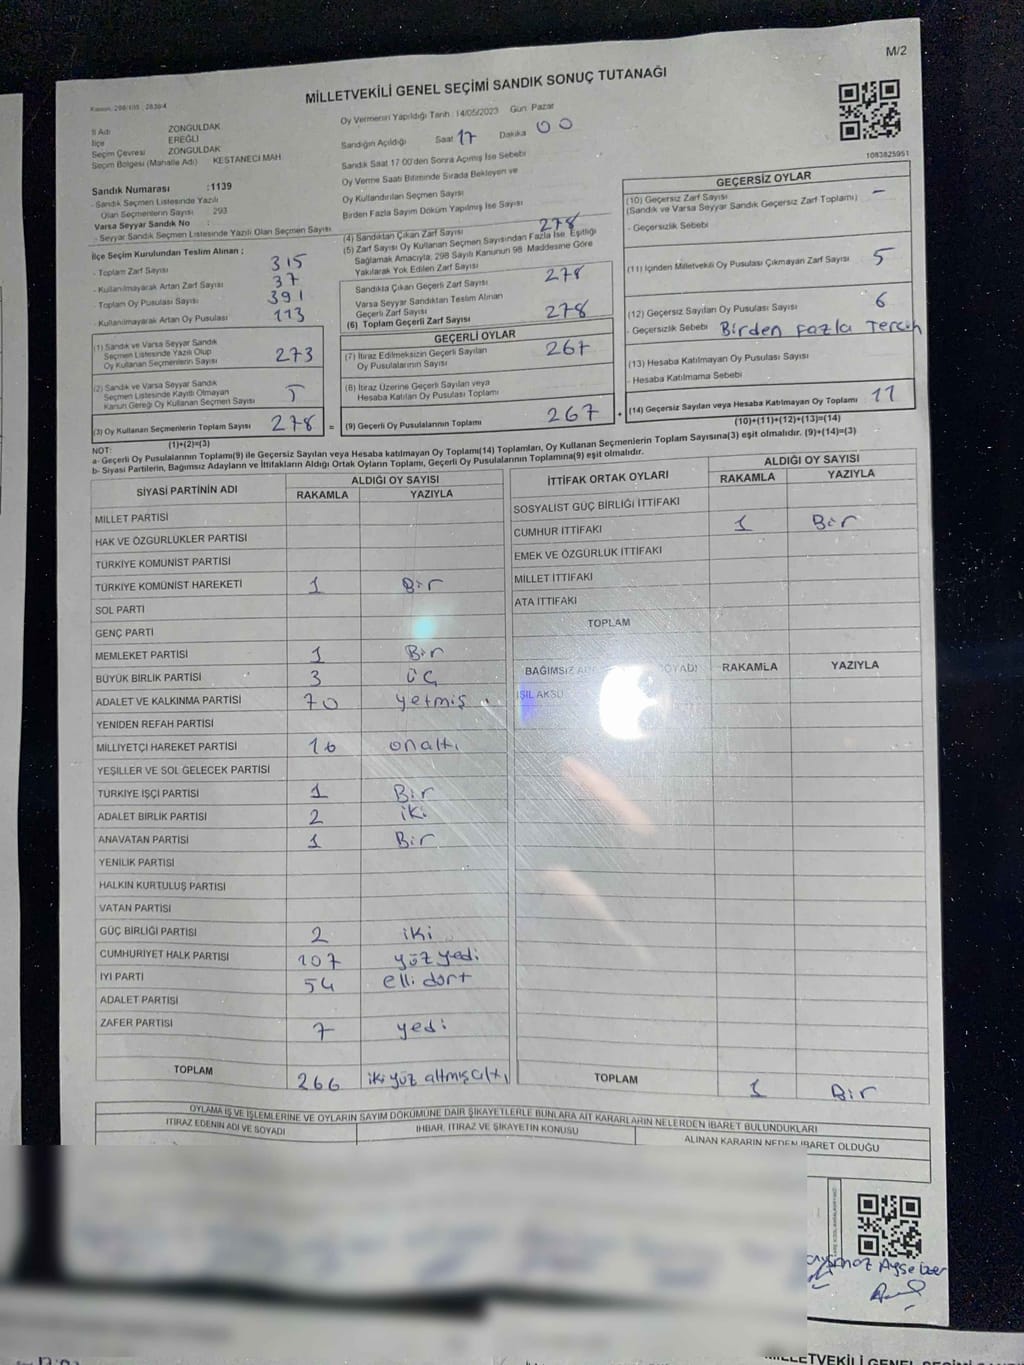 M/2
MİLLETVEKİLİ GENEL SEÇİMİ SANDIK SONUÇ TUTANAĞI
İl Adı ZONGULDAK
İlçe EREĞLİ
Seçim Çevresi ZONGULDAK
Seçim Bölgesi (Mahalle Adı) KESTANECİ MAH
Sandık Numarası :1139
- Sandık Seçmen Listesinde Yazılı
Olan Seçmenlerin Sayısı 293
Varsa Seyyar Sandık No :
- Seyyar Sandık Seçmen Listesinde Yazılı Olan Seçmen Sayısı
Oy Vermenin Yapıldığı Tarih :14/05/2023 Gün: Pazar
Sandığın Açıldığı Saat 17 Dakika 00
Sandık Saat 17 00'den Sonra Açılmış İse Sebebi
Oy Verme Saati Bitiminde Sırada Bekleyen ve
Oy Kullandırılan Seçmen Sayısı
Birden Fazla Sayım Döküm Yapılmış İse Sayısı
1083825951
İlçe Seçim Kurulundan Teslim Alınan ;
- Toplam Zarf Sayısı 315
- Kullanılmayarak Artan Zarf Sayısı 37
- Toplam Oy Pusulası Sayısı 391
- Kullanılmayarak Artan Oy Pusulası 113
(1) Sandık ve Varsa Seyyar Sandık
Seçmen Listesinde Yazılı Olup
Oy Kullanan Seçmenlerin Sayısı 273
(2) Sandık ve Varsa Seyyar Sandık
Seçmen Listesinde Kayıtlı Olmayan
Kanun Gereği Oy Kullanan Seçmen Sayısı 5
(3) Oy Kullanan Seçmenlerin Toplam Sayısı 278 =
(1)+(2)=(3)
(4) Sandıktan Çıkan Zarf Sayısı 278
(5) Zarf Sayısı Oy Kullanan Seçmen Sayısından Fazla İse, Eşitliği
Sağlamak Amacıyla, 298 Sayılı Kanunun 98. Maddesine Göre
Yakılarak Yok Edilen Zarf Sayısı
Sandıkta Çıkan Geçerli Zarf Sayısı 278
Varsa Seyyar Sandıktan Teslim Alınan
Geçerli Zarf Sayısı
(6) Toplam Geçerli Zarf Sayısı 278
GEÇERLİ OYLAR
(7) İtiraz Edilmeksizin Geçerli Sayılan
Oy Pusulalarının Sayısı 267
(8) İtiraz Üzerine Geçerli Sayılan veya
Hesaba Katılan Oy Pusulası Toplamı
(9) Geçerli Oy Pusulalarının Toplamı 267 +
GEÇERSİZ OYLAR
(10) Geçersiz Zarf Sayısı –
(Sandık ve Varsa Seyyar Sandık Geçersiz Zarf Toplamı)
- Geçersizlik Sebebi
(11) İçinden Milletvekili Oy Pusulası Çıkmayan Zarf Sayısı 5
(12) Geçersiz Sayılan Oy Pusulası Sayısı 6
- Geçersizlik Sebebi Birden Fazla Tercih
(13) Hesaba Katılmayan Oy Pusulası Sayısı
- Hesaba Katılmama Sebebi
(14) Geçersiz Sayılan veya Hesaba Katılmayan Oy Toplamı 11
(10)+(11)+(12)+(13)=(14)
NOT:
a- Geçerli Oy Pusulalarının Toplamı(9) ile Geçersiz Sayılan veya Hesaba katılmayan Oy Toplamı(14) Toplamları, Oy Kullanan Seçmenlerin Toplam Sayısına(3) eşit olmalıdır. (9)+(14)=(3)
b- Siyasi Partilerin, Bağımsız Adayların ve İttifakların Aldığı Ortak Oyların Toplamı, Geçerli Oy Pusulalarının Toplamına(9) eşit olmalıdır.
SİYASİ PARTİNİN ADI ALDIĞI OY SAYISI
RAKAMLA YAZIYLA
MİLLET PARTİSİ
HAK VE ÖZGÜRLÜKLER PARTİSİ
TÜRKİYE KOMÜNİST PARTİSİ
TÜRKİYE KOMÜNİST HAREKETİ 1 Bir
SOL PARTİ
GENÇ PARTİ
MEMLEKET PARTİSİ 1 Bir
BÜYÜK BİRLİK PARTİSİ 3 üç
ADALET VE KALKINMA PARTİSİ 70 yetmiş
YENİDEN REFAH PARTİSİ
MİLLİYETÇİ HAREKET PARTİSİ 16 onaltı
YEŞİLLER VE SOL GELECEK PARTİSİ
TÜRKİYE İŞÇİ PARTİSİ 1 Bir
ADALET BİRLİK PARTİSİ 2 iki
ANAVATAN PARTİSİ 1 Bir
YENİLİK PARTİSİ
HALKIN KURTULUŞ PARTİSİ
VATAN PARTİSİ
GÜÇ BİRLİĞİ PARTİSİ 2 iki
CUMHURİYET HALK PARTİSİ 107 yüz yedi
İYİ PARTİ 54 elli dört
ADALET PARTİSİ
ZAFER PARTİSİ 7 yedi
TOPLAM 266 iki yüz altmış altı
İTTİFAK ORTAK OYLARI ALDIĞI OY SAYISI
RAKAMLA YAZIYLA
SOSYALİST GÜÇ BİRLİĞİ İTTİFAKI
CUMHUR İTTİFAKI 1 Bir
EMEK VE ÖZGÜRLÜK İTTİFAKI
MİLLET İTTİFAKI
ATA İTTİFAKI
TOPLAM
BAĞIMSIZ SOYADI RAKAMLA YAZIYLA
IŞIL AKSU
TOPLAM 1 Bir
OYLAMA İŞ VE İŞLEMLERİNE VE OYLARIN SAYIM DÖKÜMÜNE DAİR ŞİKAYETLERLE BUNLARA AİT KARARLARIN NELERDEN İBARET BULUNDUKLARI
İTİRAZ EDENİN ADI VE SOYADI İHBAR, İTİRAZ VE ŞİKAYETİN KONUSU ALINAN KARARIN NEDEN İBARET OLDUĞU